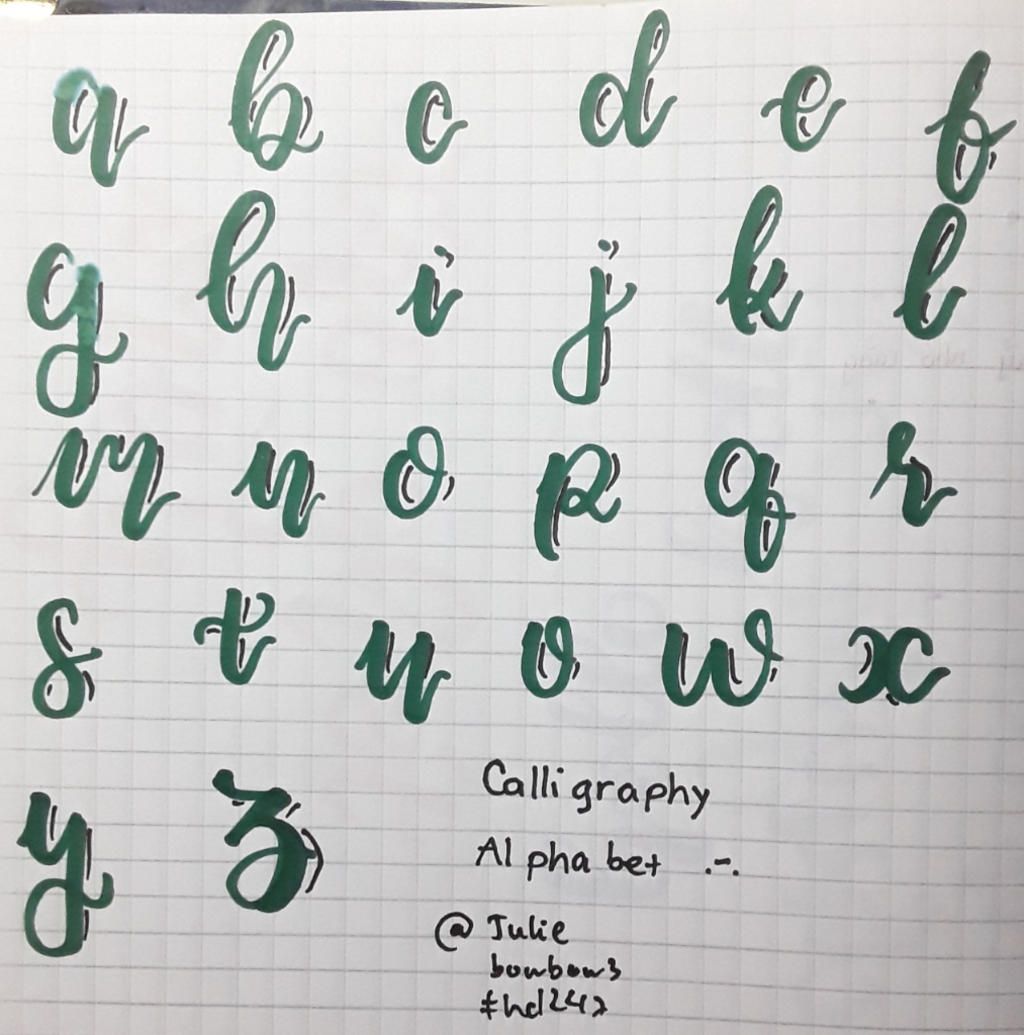 a b c d e f
g h i j k l
m n o p q r
s t u v w x
y z
Calligraphy
Alphabet .-.
@ Julie
bowbow3